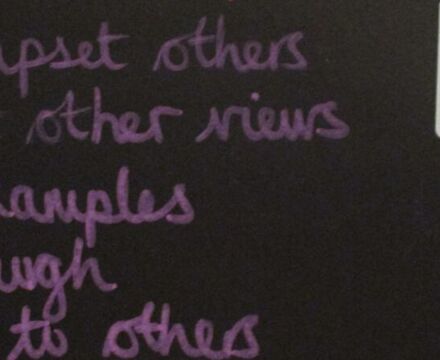 upset others
other views
examples
ough
to others